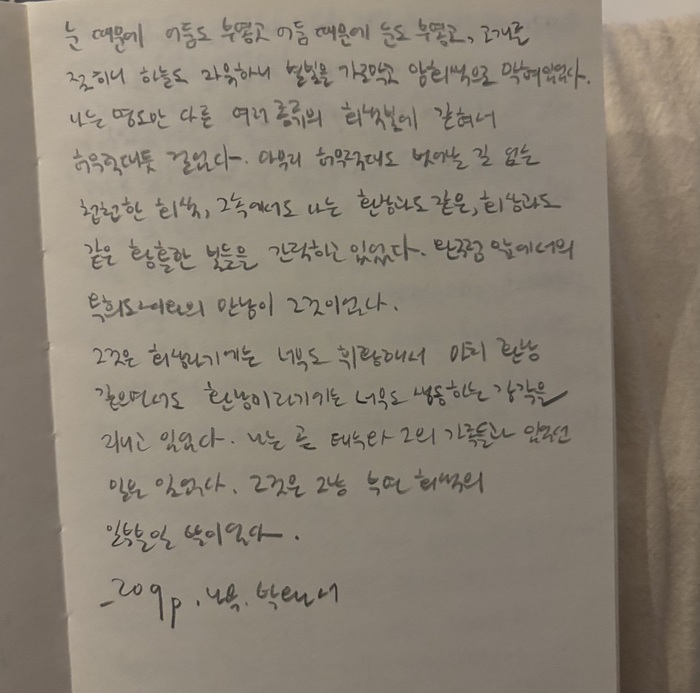 눈 때문에 어둠도 부옇고 어둠 때문에 눈도 부옇고, 고개를
젖히니 하늘도 자욱하니 별빛을 가로막고 암회색으로 막혀있었다.
나는 명도만 다른 여러 종류의 회색빛에 갇혀서
허우적대듯 걸었다. 아무리 허우적대도 벗어날 길 없는
첩첩한 회색, 그 속에서도 나는 환상과도 같은, 회상과도
같은 황홀한 빛들을 간직하고 있었다. 앞에서의
만남이 그것이었다.
그것은 회상이라기에는 너무도 휘황해서 마치 환상
같으면서도 환상이라기에는 너무도 생동하는 감각을
지니고 있었다. 나는 곧 태수와 그의 가족들과
그것은 그냥 회색의
일부분일 뿐이었다.
_209p. 나목. 박완서